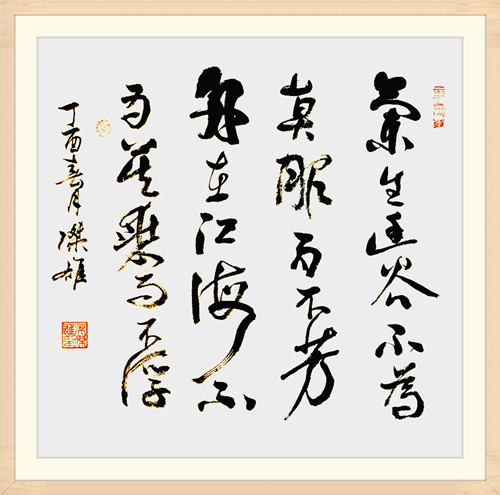 蘭生幽谷不為
莫服而不芳
舟在江海不
為莫乘而不浮
丁酉春月